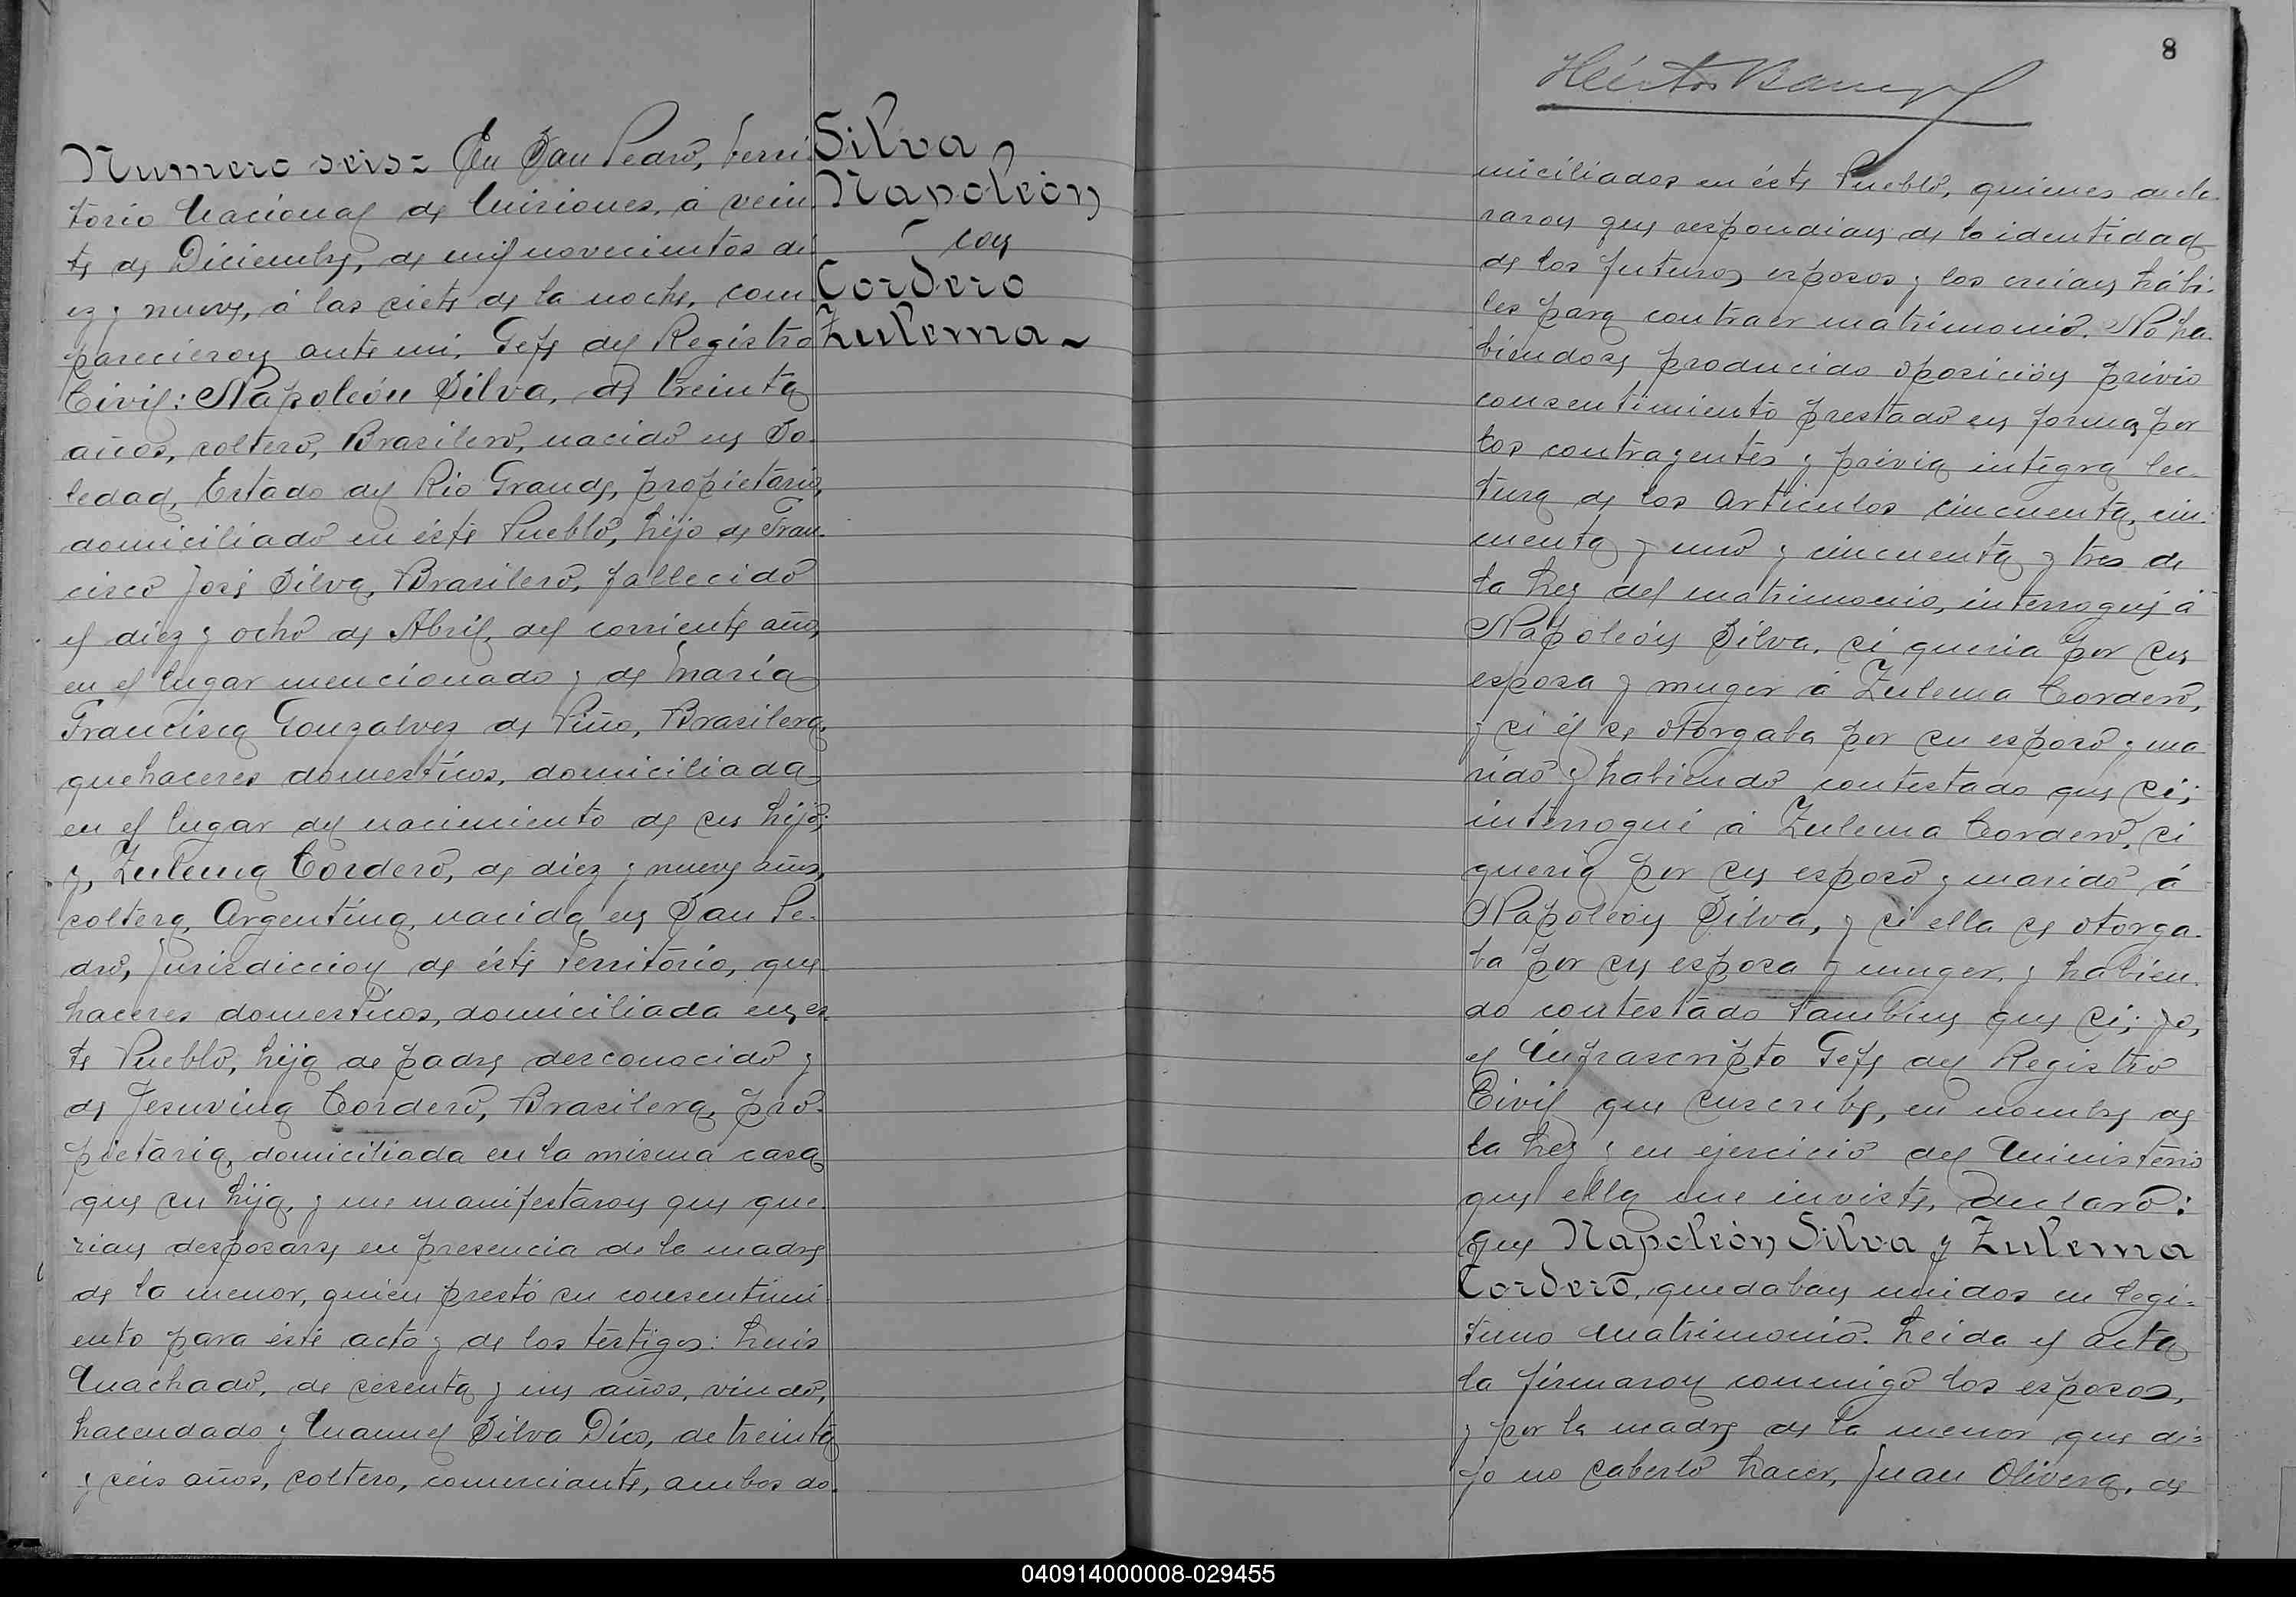 Numero seis = En San Pedro, terri
torio Nacional de Misiones, á vein
te de Diciembre, de mil novecientos di
ez y nueve, á las siete de la noche, com
parecieron ante mi, Gefe del Registro
Civil: Napoleón Silva, de treinta
años, soltero, Brasilero, nacido en So-
ledad, Estado de Rio Grande, propietario,
domiciliado en éste Pueblo, hijo de Fran-
cisco José Silva, Brasilero, fallecido
el diez y ocho de Abril, del corriente año,
en el lugar mencionado y de María
Francisca Gonzalvez de Piño, Brasilera,
quehaceres domesticos, domiciliada
en el lugar del nacimiento de su hijo;
y, Zulema Cordero, de diez y nueve años,
soltera, Argentina, nacida en San Pe-
dro, Jurisdiccion de éste Territorio, que
haceres domesticos, domiciliada en es-
te Pueblo, hija de padre desconocido y
de Jesuvina Cordero, Brasilera, pro-
pietaria, domiciliada en la misma casa
que su hija, y me manifestaron que que-
rian desposarse en presencia de la madre
de la menor, quien prestó su consentimi
ento para éste acto y de los testigos: Luis
Machado, de sesenta y un años, viudo,
hacendado y Manuel Silva Dico, de treinta
y seis años, soltero, comerciante, ambos do-
Silva,
Napoleón
con
Cordero
Zulema -
8
Héctor
miciliados en éste Pueblo, quienes decla-
raron que respondian de la identidad
de los futuros esposos y los creian hábi-
les para contraer matrimonio. No ha-
biendose producido oposición previo
consentimiento prestado en forma por
los contrayentes y previa integra lec-
tura de los articulos cincuenta, cin-
cuenta y uno y cincuenta y tres de
la Ley del matrimonio, interrogué á
Napoleón Silva, si queria por su
esposa y muger á Zulema Cordero,
y si él se otorgaba por su esposo y ma
rido y habiendo contestado que si;
interrogué á Zulema Cordero, si
queria por su esposo y marido á
Napoleón Silva, y si ella se otorga-
ba por su esposa y muger, y habien-
do contestado tambien que si; yo,
el Infrascripto Gefe del Registro
Civil que suscribe, en nombre de
la Ley y en ejercicio del Ministerio
que ella me inviste, declaro:
que Napoleón Silva y Zulema
Cordero, quedaban unidos en legi-
timo matrimonio. Leida el acta
la firmaron conmigo los esposos,
y por la madre de la menor que di-
jo no saberlo hacer, Juan Olivera, de
040914000008-029455